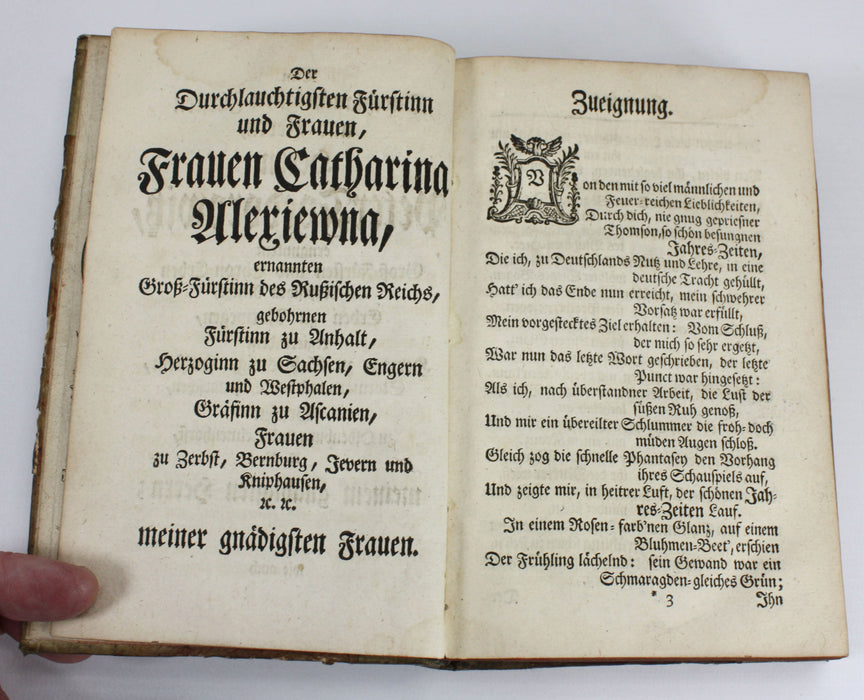 Der
Durchlauchtigsten Fürstinn
und Frauen,
Frauen Catharina
Alexiewna,
ernannten
Groß-Fürstinn des Rußischen Reichs,
gebohrnen
Fürstinn zu Anhalt,
Herzoginn zu Sachsen, Engern
und Westphalen,
Gräfinn zu Ascanien,
Frauen
zu Zerbst, Bernburg, Jevern und
Kniphausen,
ꝛc. ꝛc.
meiner gnädigsten Frauen.
Zueignung.
Von den mit so viel männlichen und
Feuer-reichen Lieblichkeiten,
Durch dich, nie gnug gepriesner
Thomson, so schön besungnen
Jahres-Zeiten,
Die ich, zu Deutschlands Nutz und Lehre, in eine
deutsche Tracht gehüllt,
Hatt' ich das Ende nun erreicht, mein schwehrer
Vorsatz war erfüllt,
Mein vorgestecktes Ziel erhalten: Vom Schluß,
der mich so sehr ergetzt,
War nun das letzte Wort geschrieben, der letzte
Punct war hingesetzt:
Als ich, nach überstandner Arbeit, die Lust der
süßen Ruh genoß,
Und mir ein übereilter Schlummer die froh- doch
müden Augen schloß.
Gleich zog die schnelle Phantasey den Vorhang
ihres Schauspiels auf,
Und zeigte mir, in heitrer Luft, der schönen Jah-
res-Zeiten Lauf.
In einem Rosen-farb'nen Glanz, auf einem
Bluhmen-Beet', erschien
Der Frühling lächelnd: sein Gewand war ein
Schmaragden-gleiches Grün;
* 3 Ihn